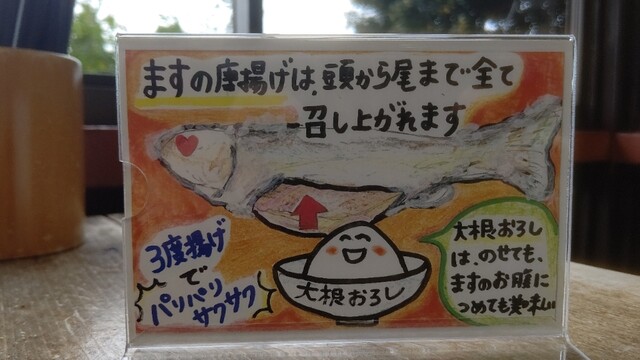 ますの唐揚げは、頭から尾まで全て
召し上がれます
3度揚げ
で
パリパリ
サクサク
大根おろし
大根おろし
は、のせても、
ますのお腹に
つめても美味しい